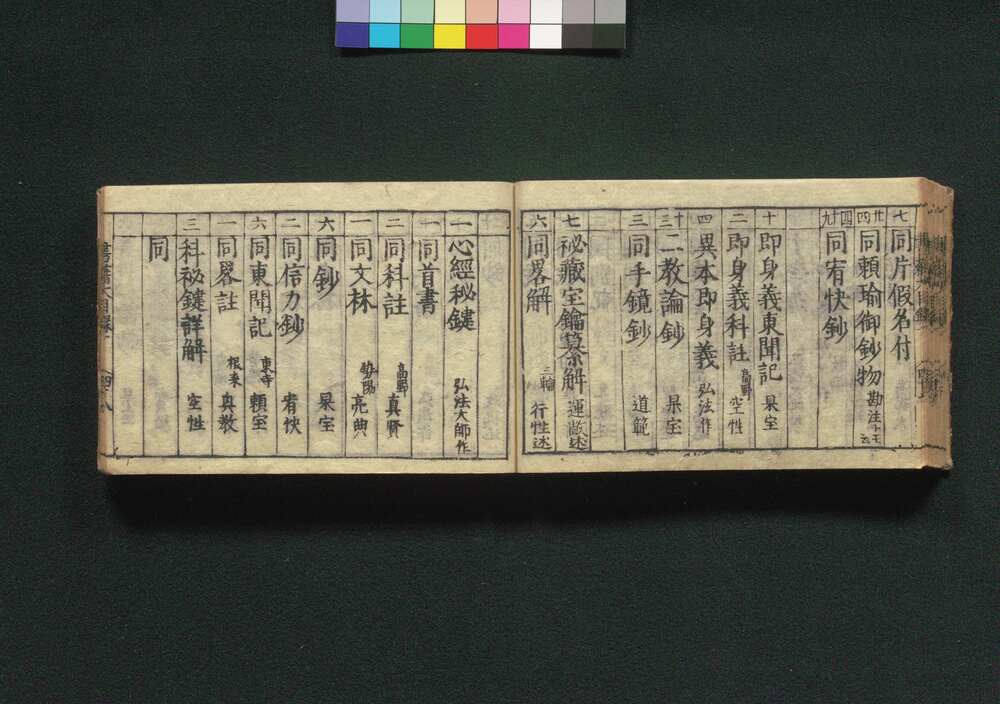 七 同片假名付
廿四 同頼瑜御鈔物 勘注トモ云
四十九 同宥快鈔
十 即身義東聞記 杲宝
二 即身義科註 高野 空性
四 異本即身義 弘法作
十三 二教論鈔 杲宝
三 同手鏡鈔 道範
七 秘蔵宝鑰纂解 運敞述
六 同畧解 三輪 行性述
一 心經秘鍵 弘法大師作
一 同首書
二 同科註 高野 真賢
一 同文林 亮典
六 同鈔 杲宝
二 同信力鈔 宥快
六 同東聞記 東寺 頼宝
一 同畧註 根来 奥教
三 科秘鍵詳解 空性
同